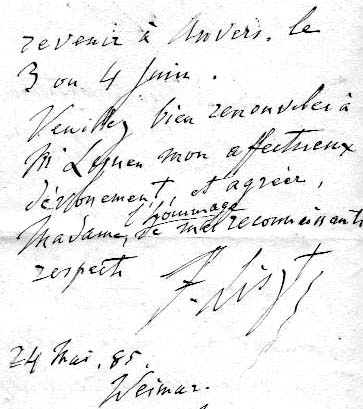 revenir à Anvers, le
3 ou 4 Juin.
Veuillez bien renouveler à
Mr Lynen mon affectueux
dévouement, et agréer,
Madame, l'hommage de mes reconnaissants
respects
F. Liszt
24 Mai, 85.
Weimar.